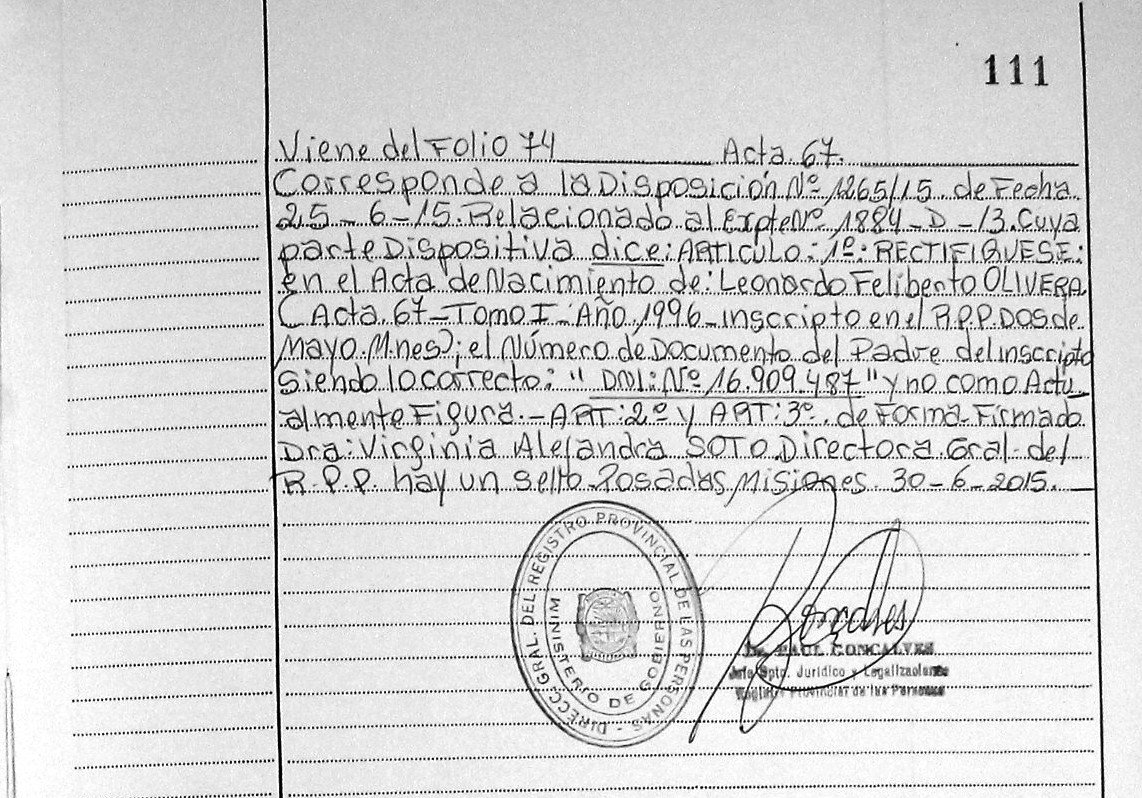 111
Viene del Folio 74 Acta. 67.
Corresponde a la Disposición Nº 1265/15 de Fecha
25-6-15. Relacionado al Expte Nº 1884-D-13. Cuya
parte Dispositiva dice: ARTICULO: 1º: RECTIFIQUESE:
en el Acta de Nacimiento de: Leonardo Feliberto OLIVERA
(Acta. 67-Tomo I-Año 1996-inscripto en el R.P.P. Dos de
Mayo. M.nes); el Número de Documento del Padre del inscripto
siendo lo correcto: "DNI: Nº 16.909.487" y no como Actu
almente Figura.- ART: 2º y ART: 3º. de Forma. Firmado
Dra: Virginia Alejandra SOTO Directora. Gral. del
R.P.P. hay un sello. Posadas, Misiones. 30-6-2015.
DIRECC. GRAL. DEL REGISTRO PROVINCIAL DE LAS PERSONAS -
MINISTERIO DE GOBIERNO
Goncalves
Dr. RAUL GONCALVES
Jefe Dpto. Jurídico y Legalizaciones
Registro Provincial de las Personas